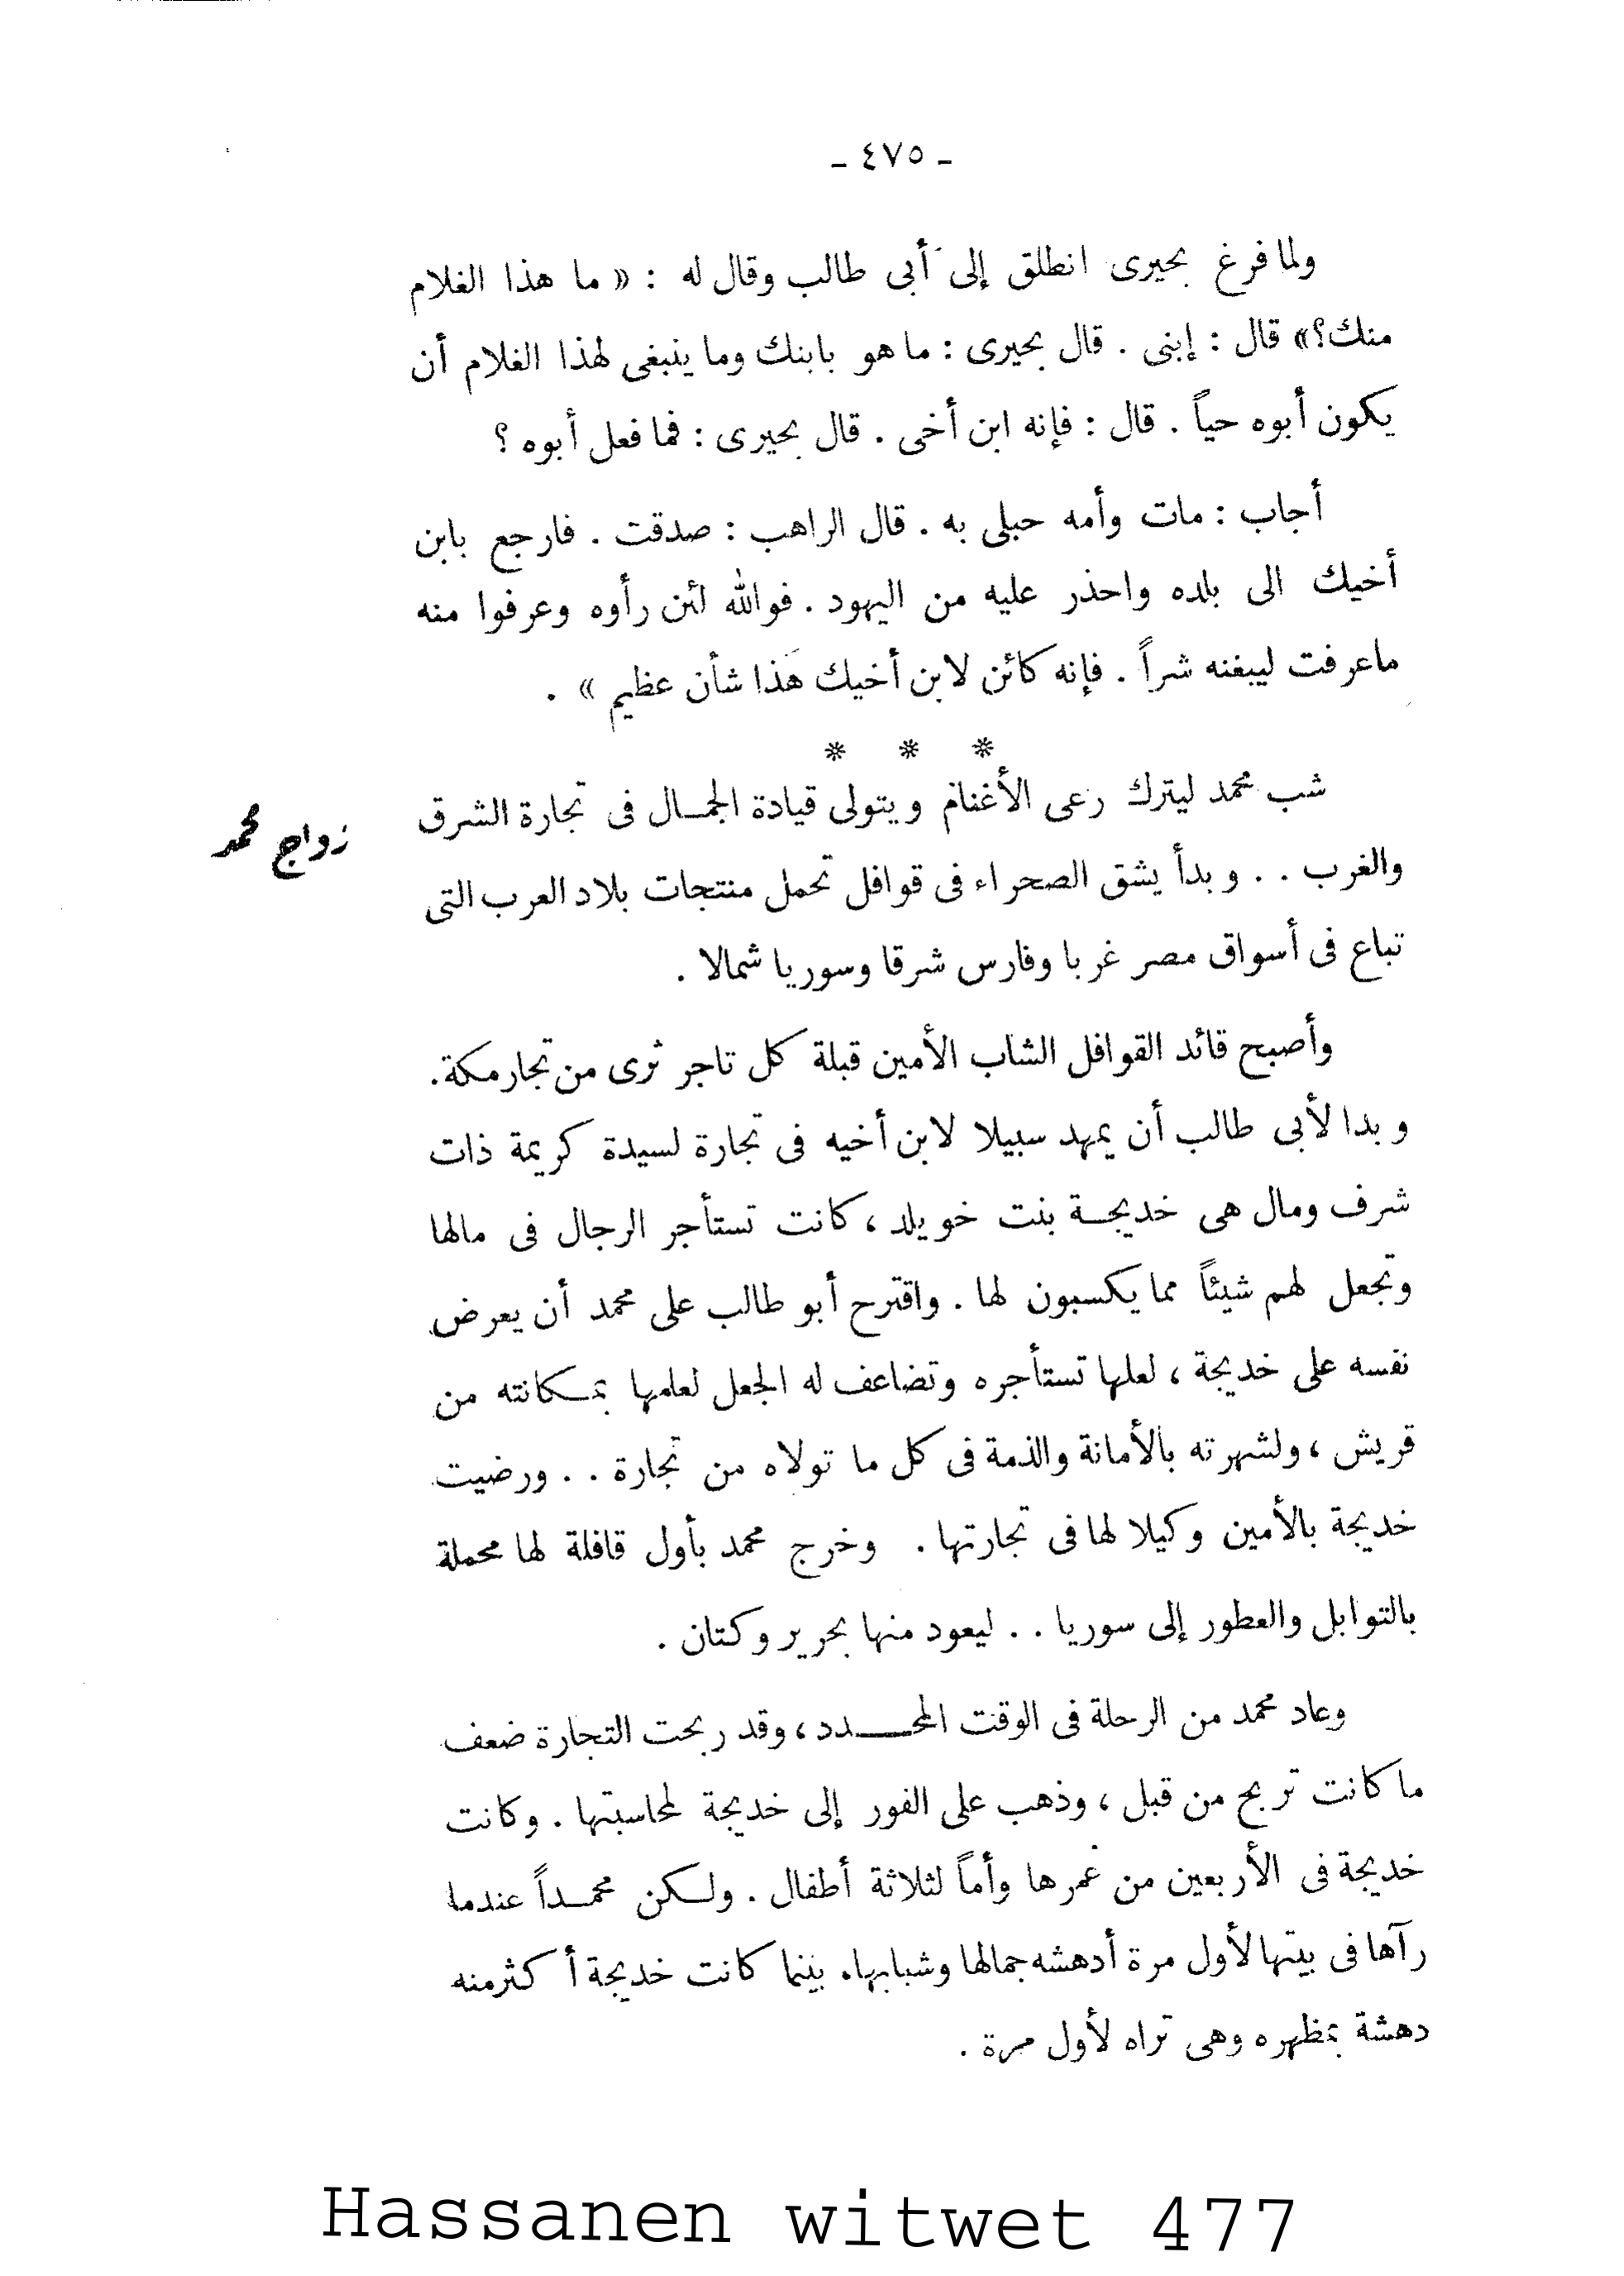 ـ ٤٧٥ ـ
ولما فرغ بحيرى انطلق إلى أبى طالب وقال له : « ما هذا الغلام
منك؟» قال : إبنى . قال بحيرى : ما هو بابنك وما ينبغى لهذا الغلام أن
يكون أبوه حياً . قال : فإنه ابن أخى . قال بحيرى : فما فعل أبوه ؟
أجاب : مات وأمه حبلى به . قال الراهب : صدقت . فارجع بابن
أخيك الى بلده واحذر عليه من اليهود . فوالله لئن رأوه وعرفوا منه
ماعرفت ليبغنه شراً . فإنه كائن لابن أخيك هذا شأن عظيم » .
* * *
شب محمد ليترك رعى الأغنام ويتولى قيادة الجمـال فى تجارة الشرق
زواج محمد
والغرب . . وبدأ يشق الصحراء فى قوافل تحمل منتجات بلاد العرب التى
تباع فى أسواق مصر غربا وفارس شرقا وسوريا شمالا .
وأصبح قائد القوافل الشاب الأمين قبلة كل تاجر ثرى من تجار مكة.
وبدا لأبى طالب أن يمهد سبيلا لابن أخيه فى تجارة لسيدة كريمة ذات
شرف ومال هى خديجـة بنت خويلد ، كانت تستأجر الرجال فى مالها
وتجعل لهم شيئاً مما يكسبون لها . واقترح أبو طالب على محمد أن يعرض
نفسه على خديجة ، لعلها تستأجره وتضاعف له الجعل لعلمها بمـكانته من
قريش ، ولشهرته بالأمانة والذمة فى كل ما تولاه من تجارة . . ورضيت
خديجة بالأمين وكيلا لها فى تجارتها . وخرج محمد بأول قافلة لها محملة
بالتوابل والعطور إلى سوريا . . ليعود منها بحرير وكتان .
وعاد محمد من الرحلة فى الوقت المحـــدد ، وقد ربحت التجارة ضعف
ما كانت تربح من قبل ، وذهب على الفور إلى خديجة لمحاسبتها . وكانت
خديجة فى الأربعين من عمرها وأماً لثلاثة أطفال . ولـكن محمـداً عندما
رآها فى بيتها لأول مرة أدهشه جمالها وشبابها. بينما كانت خديجة أكثر منه
دهشة بمظهره وهى تراه لأول مرة .
Hassanen witwet 477